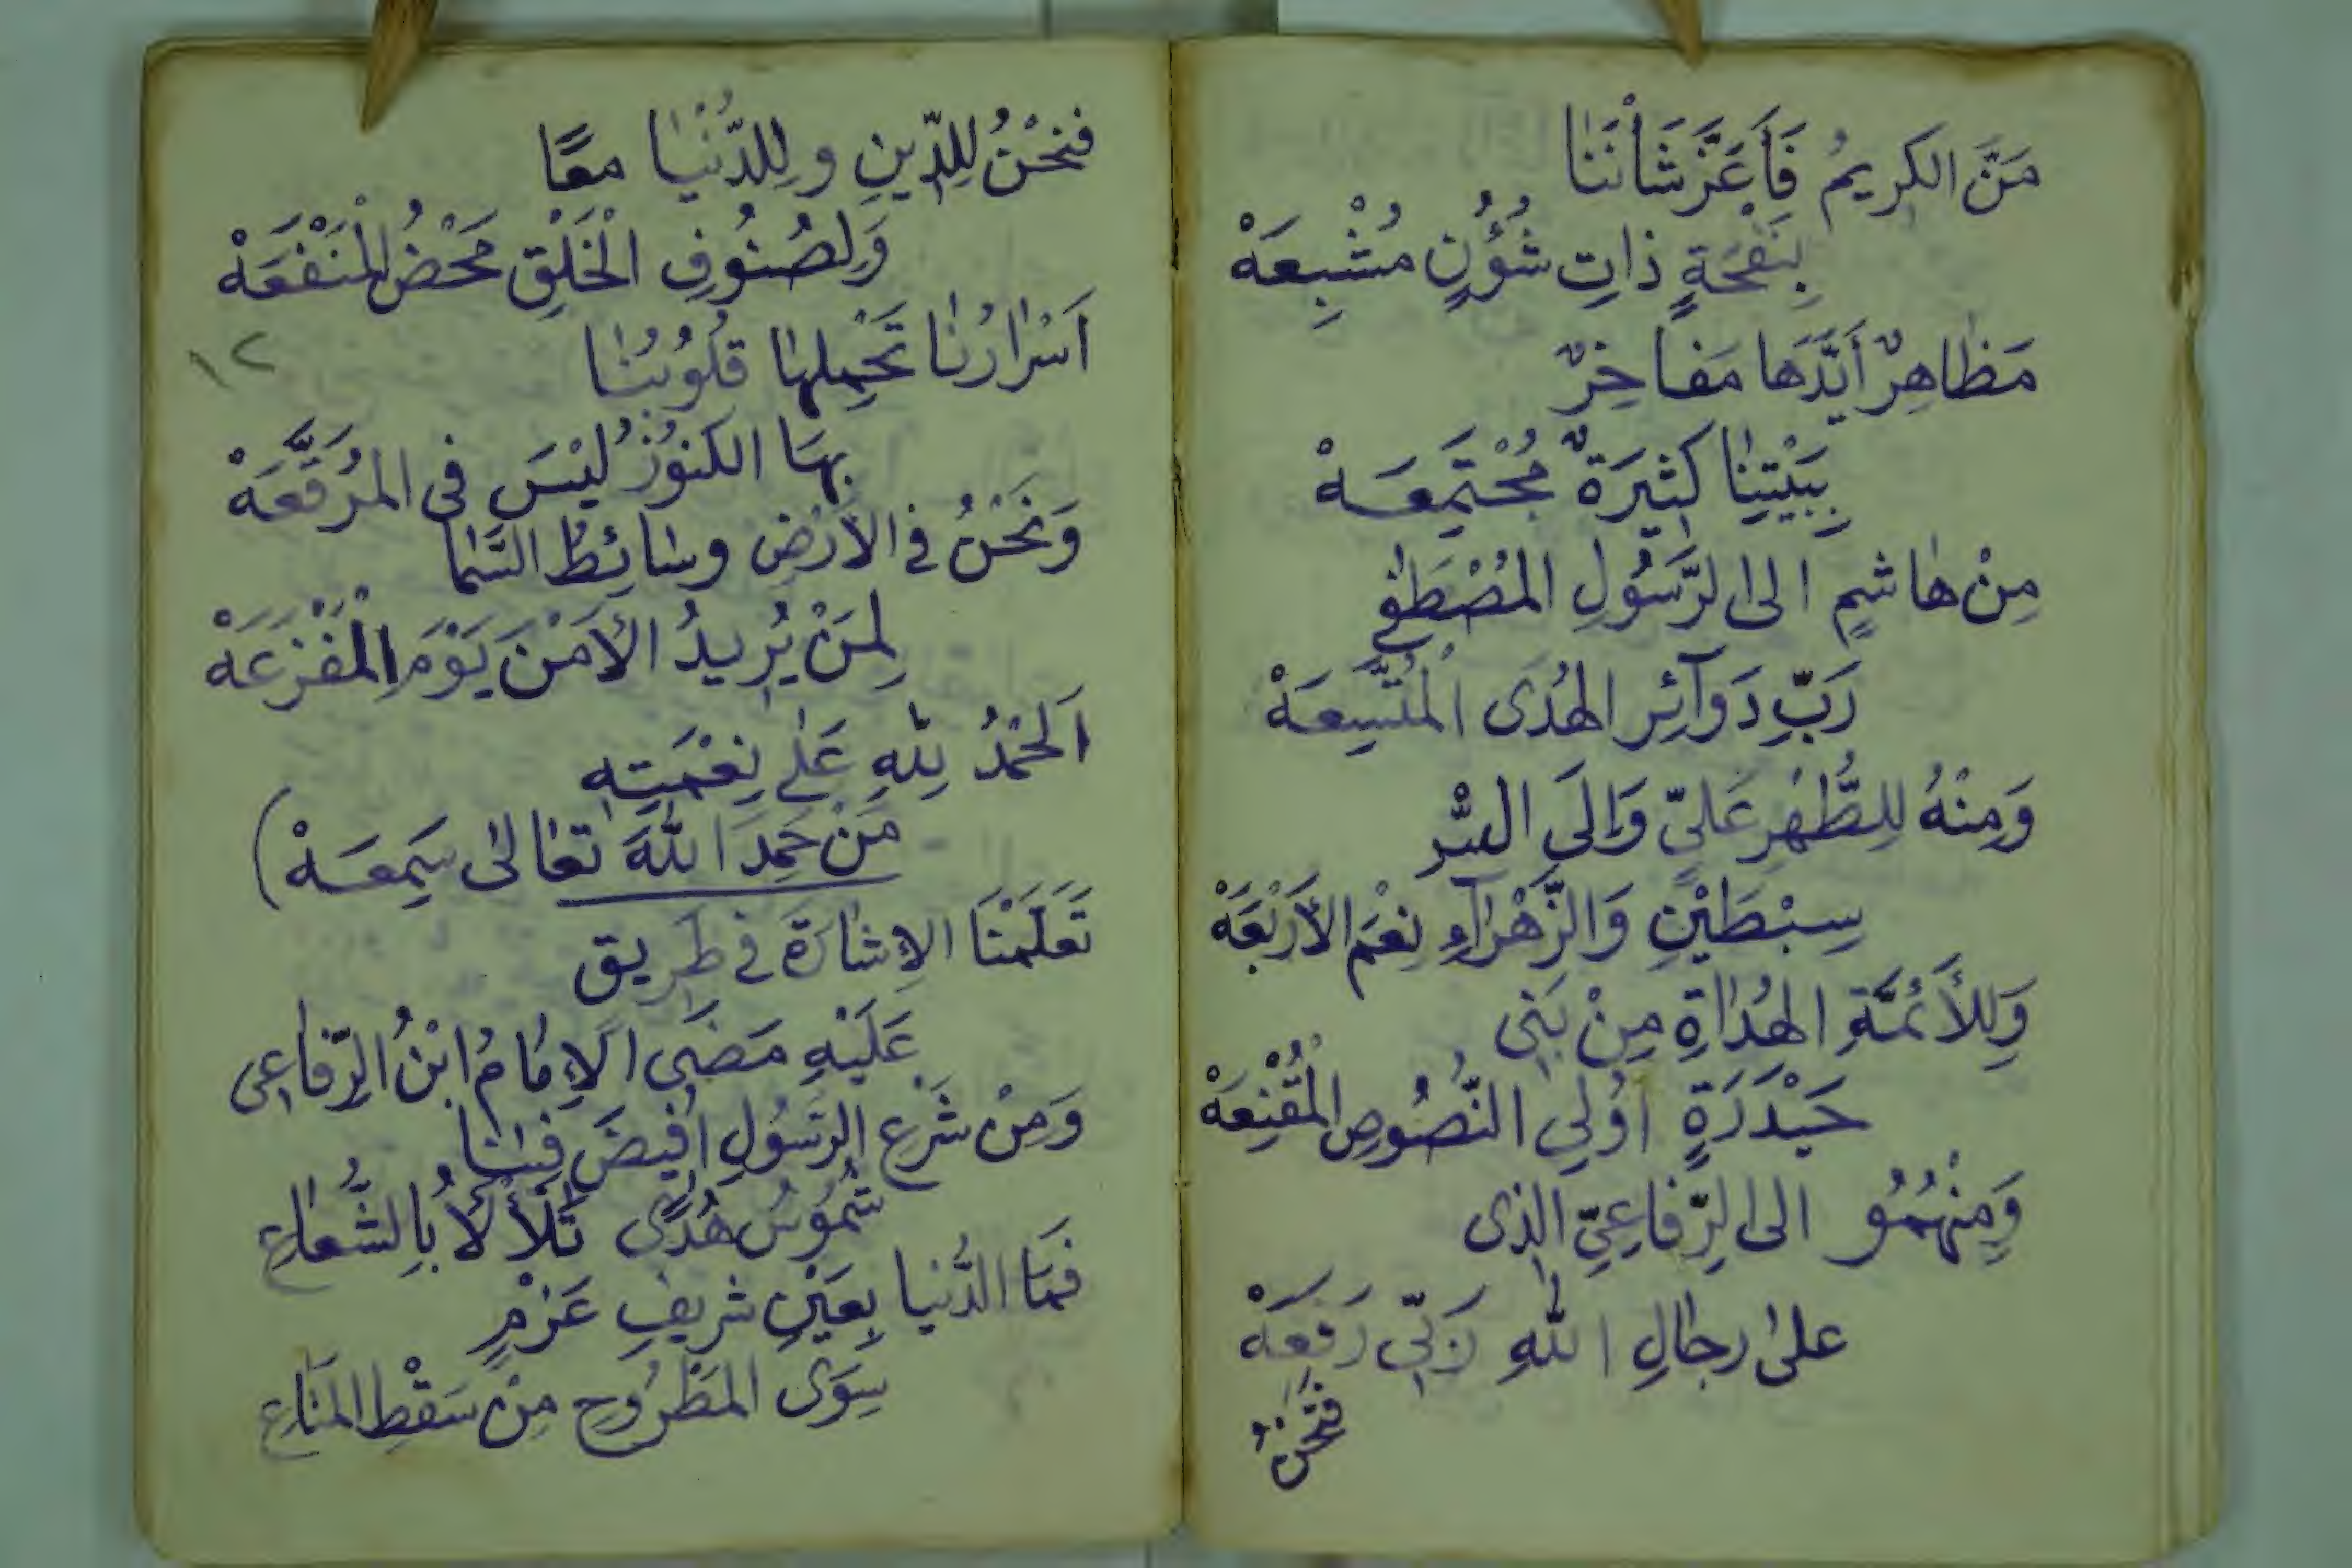 مَنَّ الكريمُ فَأَعَزَّ شَأْنَنَا
بِنَفْحَةٍ ذاتِ شُؤُنٍ مُشْبِعَهْ
مَظاهِرٌ أَيَّدَهَا مَفاخِرٌ
بِبَيْتِنَا كَثيرَةٌ مُجْتَمِعَهْ
مِنْ هاشمٍ الى الرَّسُولِ المُصْطَفى
رَبِّ دَوَآئِرِ الهُدَى المُتَّسِعَهْ
وَمِنْهُ لِلطُّهْرِ عَليّ وَالَى السّْر
سِبْطَيْنِ وَالزَّهْرَآءِ نِعْمَ الأَرْبَعَهْ
وَلِلأَئمَّةِ الهُدَاةِ مِنْ بَنِى
حَيْدَرَةٍ اوُلِي النُّصُوصِ المُقْنِعَهْ
وَمِنْهُمُو الى الرِّفاعِيِّ الذى
على رجالِ اللهِ رَبّى رَفَعَهْ
فَنَحْنُ
فنحْنُ لِلدِّينِ ولِلدُّنْيَا معًا
وَلِصُنُوفِ الْخَلْقِ مَحْضُ الْمَنْفَعَهْ
اَسْرارُنا تَحْمِلها قُلُوبُنَا
بِهَا الكنوُزُ لَيْسَ فى المُرَقَّعَهْ
١٢
وَنَحْنُ في الأَرْضِ وسائِطُ السَّما
لِمَنْ يُريدُ الأَمْنَ يَوْمَ الْمَفْزَعَهْ
اَلحَمْدُ لِلّهِ عَلى نِعْمَتِهِ
مَنْ حَمِدَ اللهَ تعالى سَمِعَهْ)
تَعَلَّمْنَا الإِشارَةَ في طَريق
عَلَيْهِ مَضَى الإِمامُ ابْنُ الرِّفاعِى
وَمِنْ شَرْعِ الرَّسُولِ اُفيضَ فينا
شُمُوسُ هُدًى تَلَأْلَأُ بالشُّعاعِ
فمَا الدُّنيا بِعَيْنِ شَريفِ عَزْمٍ
سِوَى المَطْرُوحِ مِنْ سَقْطِ المَتَاعِ